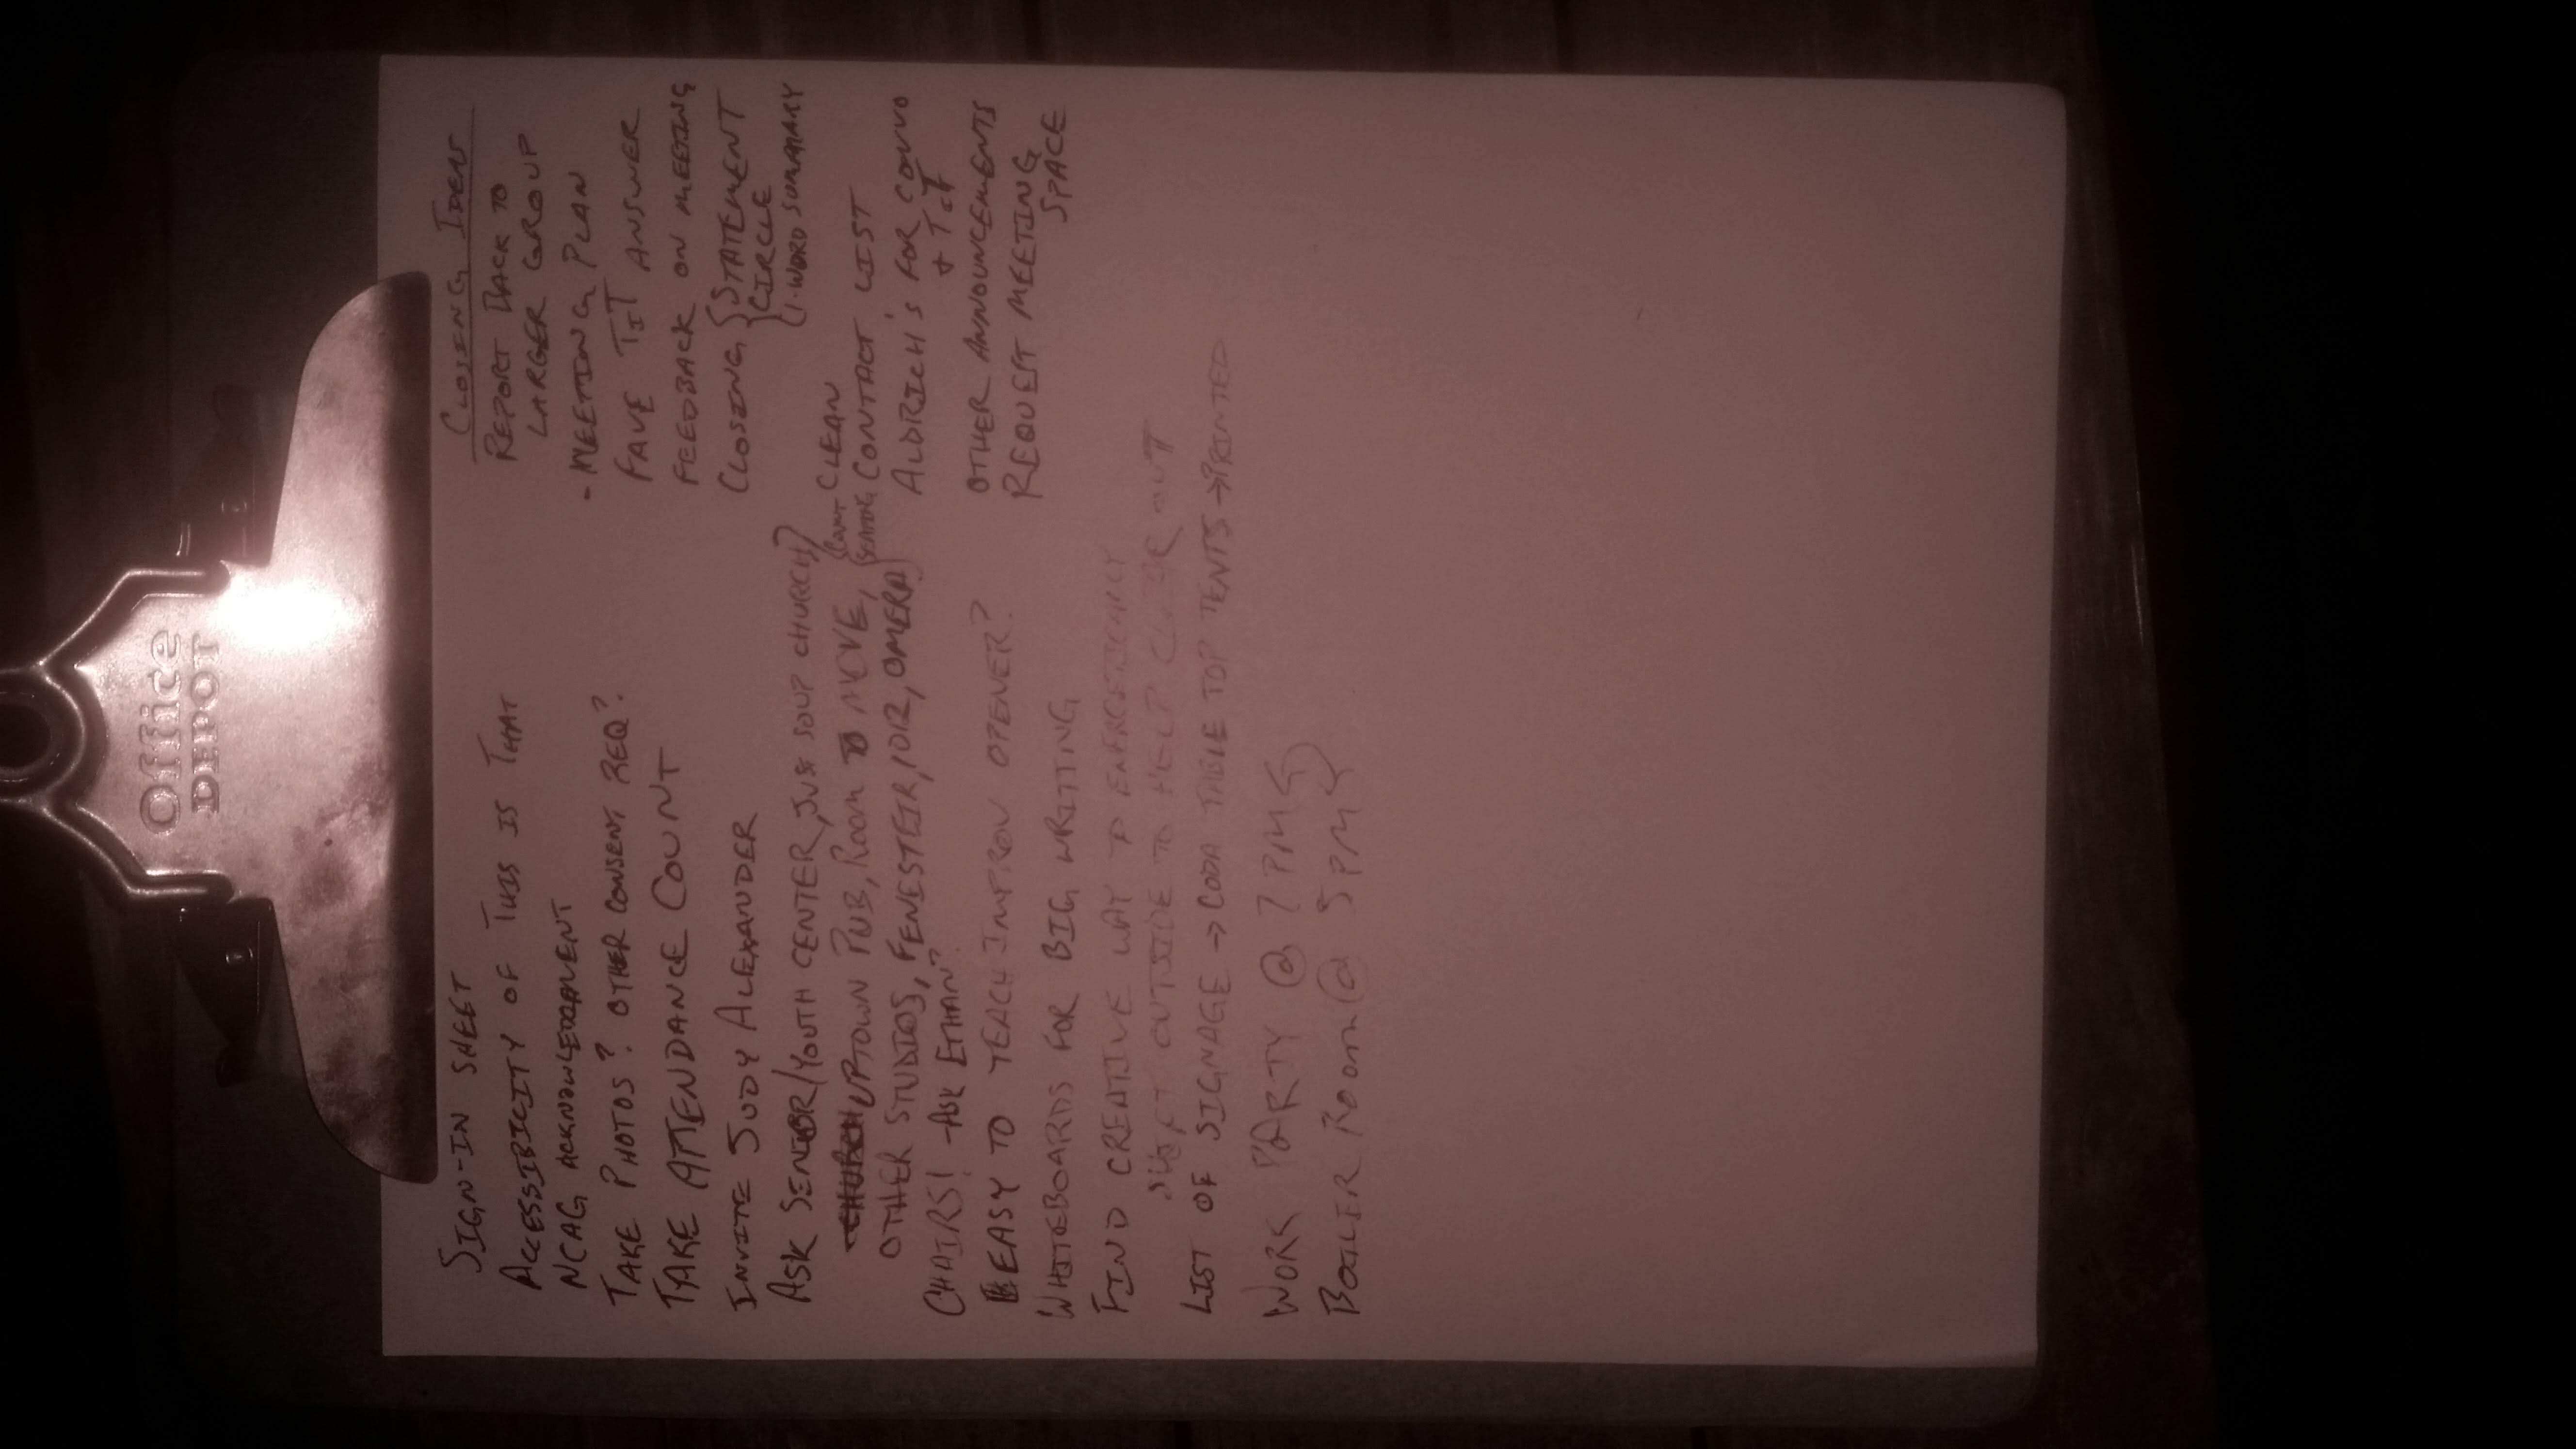 Office
DEPOT
SIGN-IN SHEET
ACCESSIBILITY OF THIS IS THAT
NCAG ACKNOWLEDGEMENT
TAKE PHOTOS? OTHER CONSENT REQ?
TAKE ATTENDANCE COUNT
INVITE JUDY ALEXANDER
ASK SENIOR/YOUTH CENTER, JUST SOUP CHURCH
CHURCH UPTOWN PUB, ROOM TO MOVE,
OTHER STUDIOS, FENESTEIR, 1012, OMERA
SEATING
CHAIRS! -ASK ETHAN?
EASY TO TEACH IMPROV OPENER?
WHITEBOARDS FOR BIG WRITING
FIND CREATIVE WAY TO ENERGETICALLY
OUTSIDE TO HELP CLEAR OUT
LIST OF SIGNAGE → CODA TABLE TOP TENTS → PRINTED
WORK PARTY @ 7PM
BOILER ROOM @ 5PM
CLOSING IDEAS
REPORT BACK TO
LARGER GROUP
- MEETING PLAN
FAVE TIT ANSWER
FEEDBACK ON MEETING
CLOSING { STATEMENT
CIRCLE
1-WORD SUMMARY
CLEAN
CONTACT LIST
ALDRICH'S FOR CONVO
+ TIT
OTHER ANNOUNCEMENTS
REQUEST MEETING
SPACE